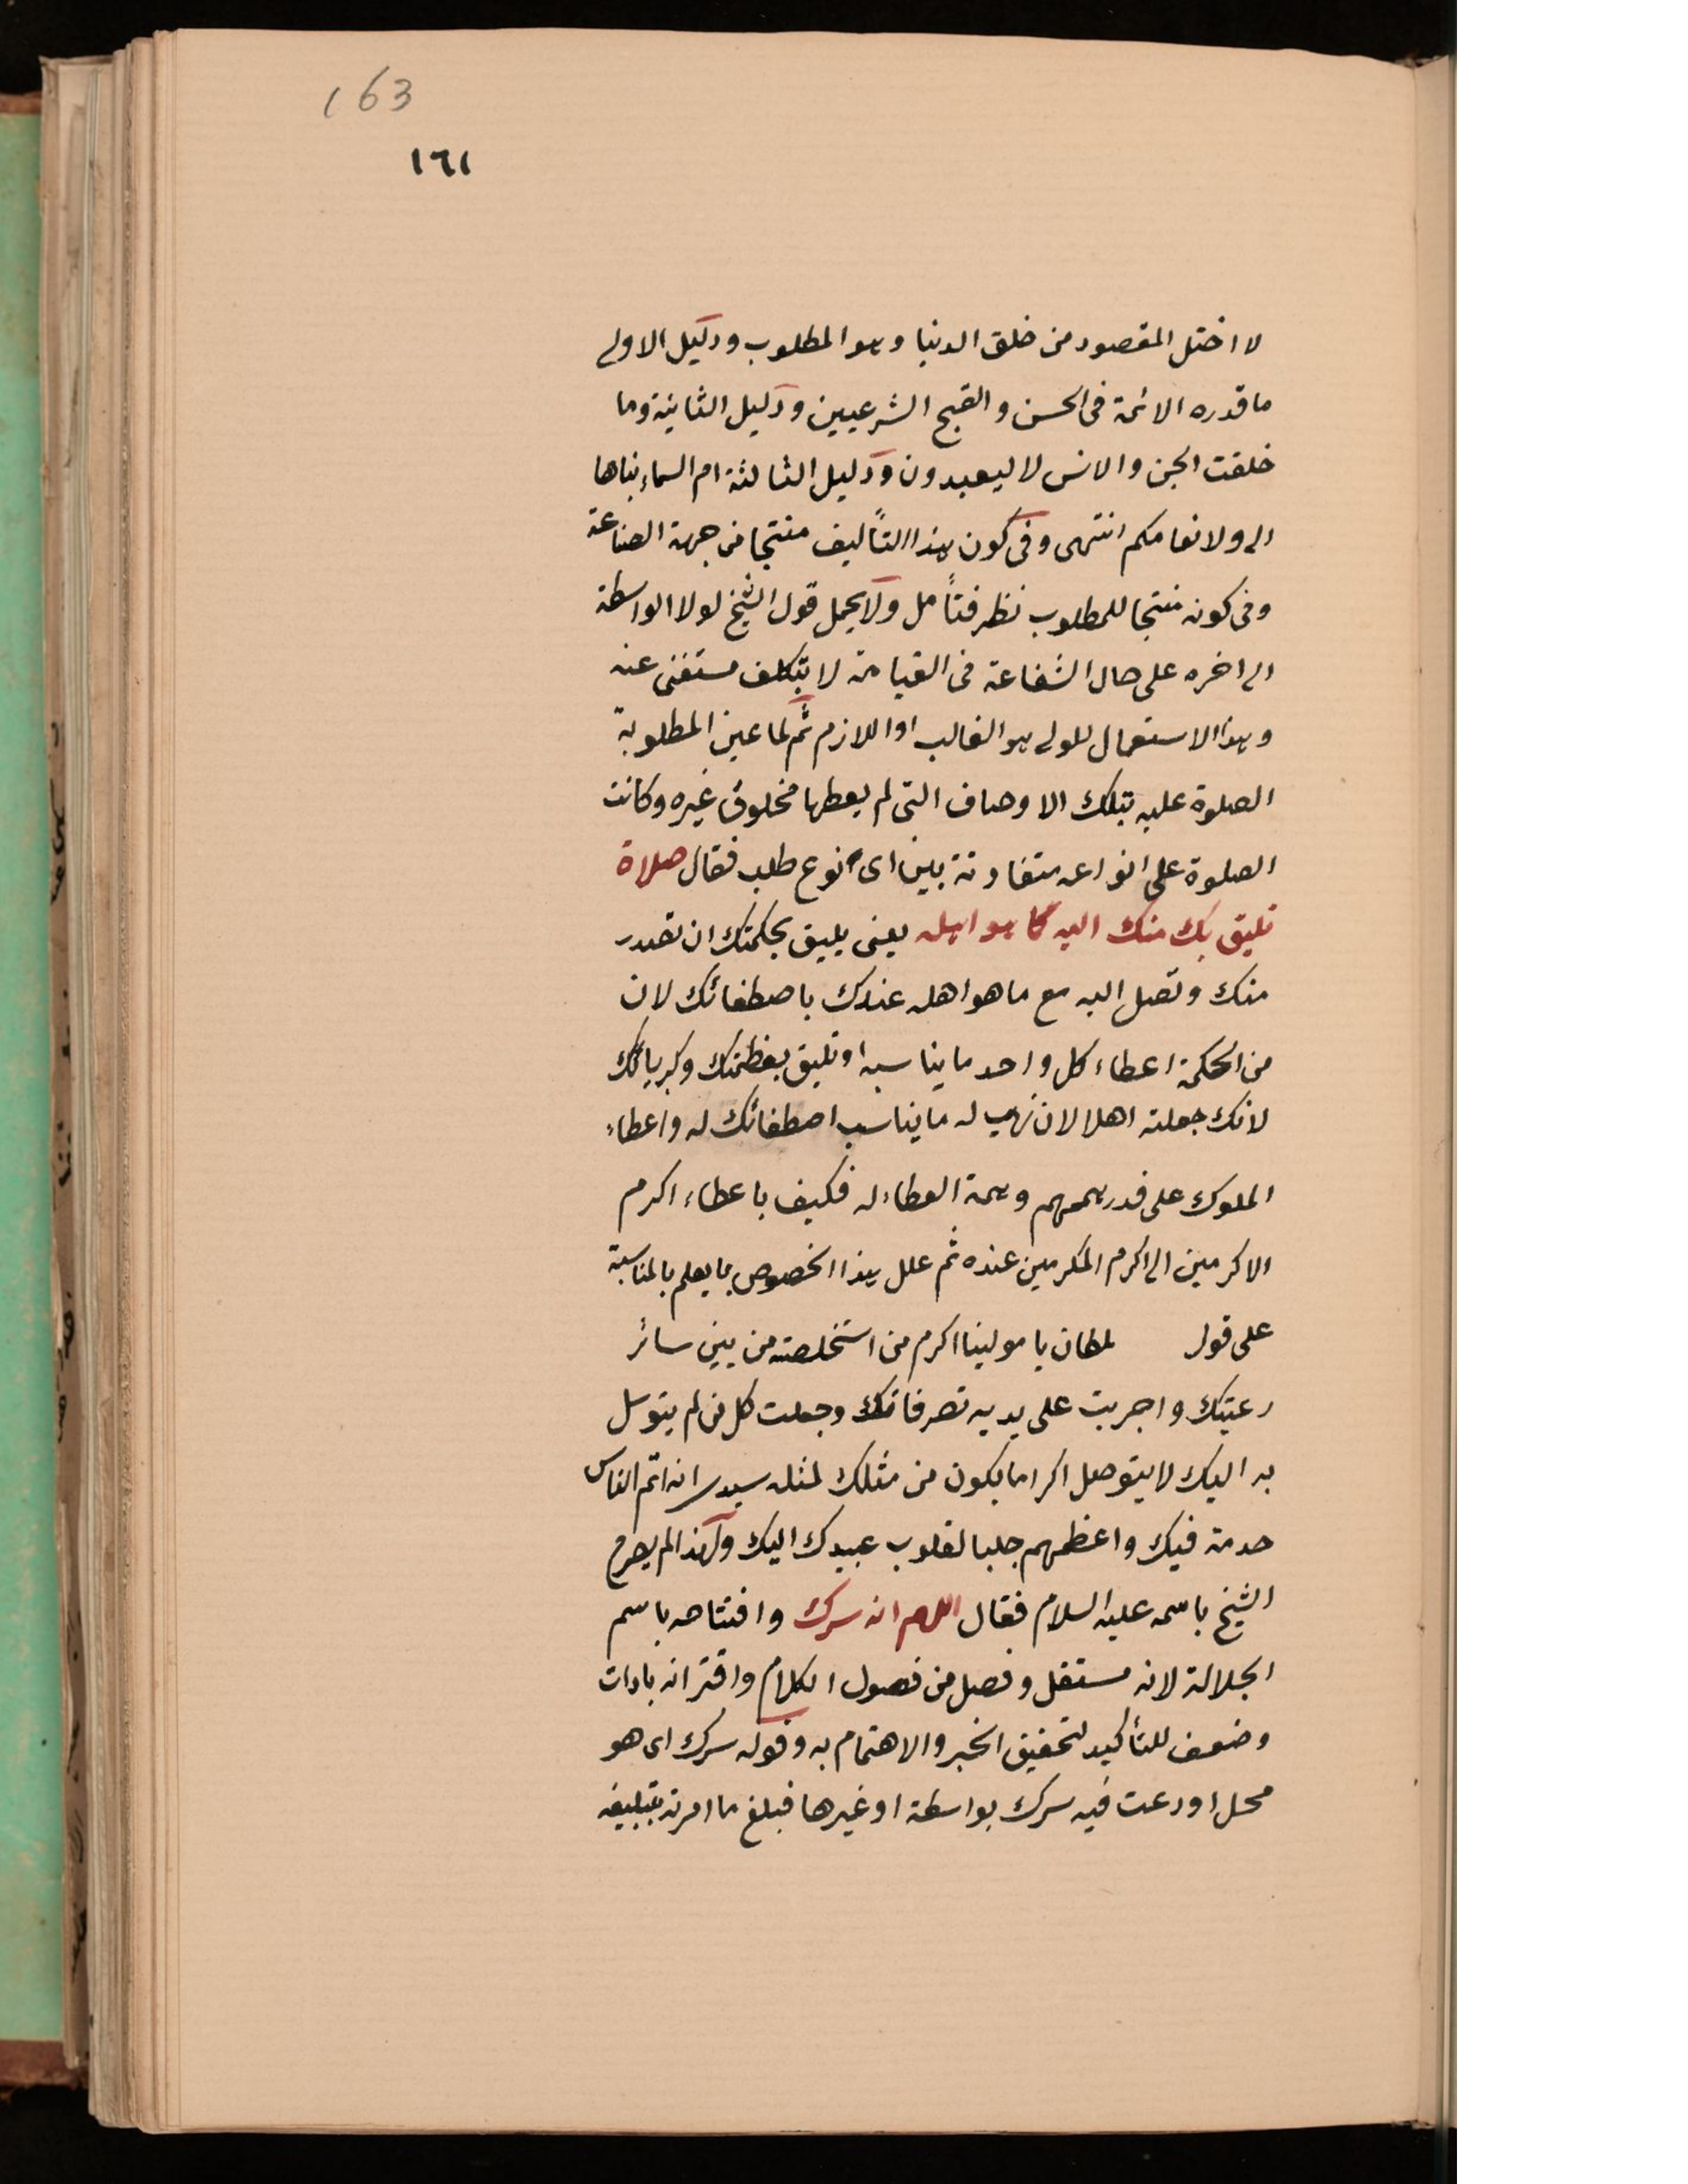 163
١٦١
لا اختل المقصود من خلق الدنيا وهو المطلوب ودليل الاولى
ما قدره الائمة فى الحسن والقبح الشرعيين ودليل الثانية وما
خلقت الجن والانس لا ليعبدون ودليل الثالثة ام السماء بناها
الى ولانعامكم انتهى وفى كون هذا التأليف منتجا من جهة الصناعة
وفى كونه منتجا للمطلوب نظر فتأمل ولا يحمل قول الشيخ لولا الواسطة
الى اخره على حال الشفاعة فى القيامة لا بتكلف مستغنى عنه
وهذا الاستعمال للولى هو الغالب او اللازم ثم لما عين المطلوبة
الصلوة عليه بتلك الاوصاف التى لم يعطها مخلوق غيره وكانت
الصلوة على انواع متفاوتة بين اى نوع طلب فقال صلاة
تليق بك منك اليه كما هو اهله يعنى يليق بحكمتك ان تصدر
منك وتصل اليه مع ما هو اهله عندك باصطفائك لان
من الحكمة اعطاء كل واحد ما يناسبه او تليق بعظمتك وكبريائك
لانك جعلته اهلا لان تهب له ما يناسب اصطفائك له واعطاء
الملوك على قدر هممهم وهمة العطاء له فكيف باعطاء اكرم
الاكرمين الى اكرم المكرمين عنده ثم علل هذا الخصوص بما يعلم بالمناسبة
على قول لمطان يا مولينا اكرم من استخلصته من بين سائر
رعيتك واجريت على يديه تصرفاتك وجعلت كل من لم يتوسل
به اليك لا يتوصل اكراما يكون من مثلك لمثله سيدى انه اتم الناس
خدمة فيك واعظمهم جلبا لقلوب عبيدك اليك ولهذا لم يصرح
الشيخ باسمه عليه السلام فقال اللهم انه سرك وافتتاحه باسم
الجلالة لانه مستقل وفصل من فصول الكلام واقترانه بادات
وضعف للتأكيد لتحقيق الخبر والاهتمام به وقوله سرك اى هو
محل اودعت فيه سرك بواسطة او غيرها فبلغ ما امرته بتبليغه